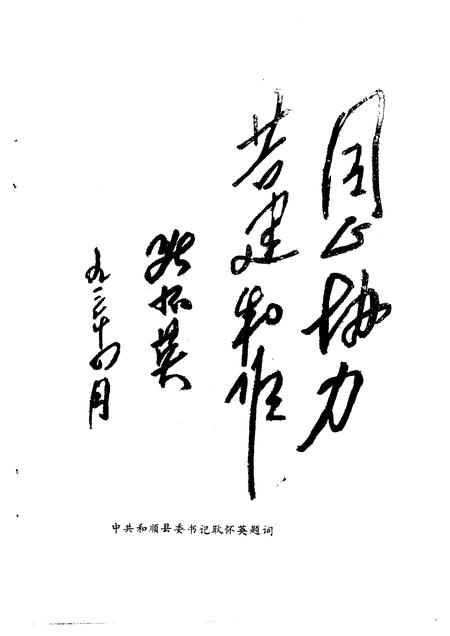 同心协力
建和顺
耿怀英
九三年四月
中共和顺县委书记耿怀英题词